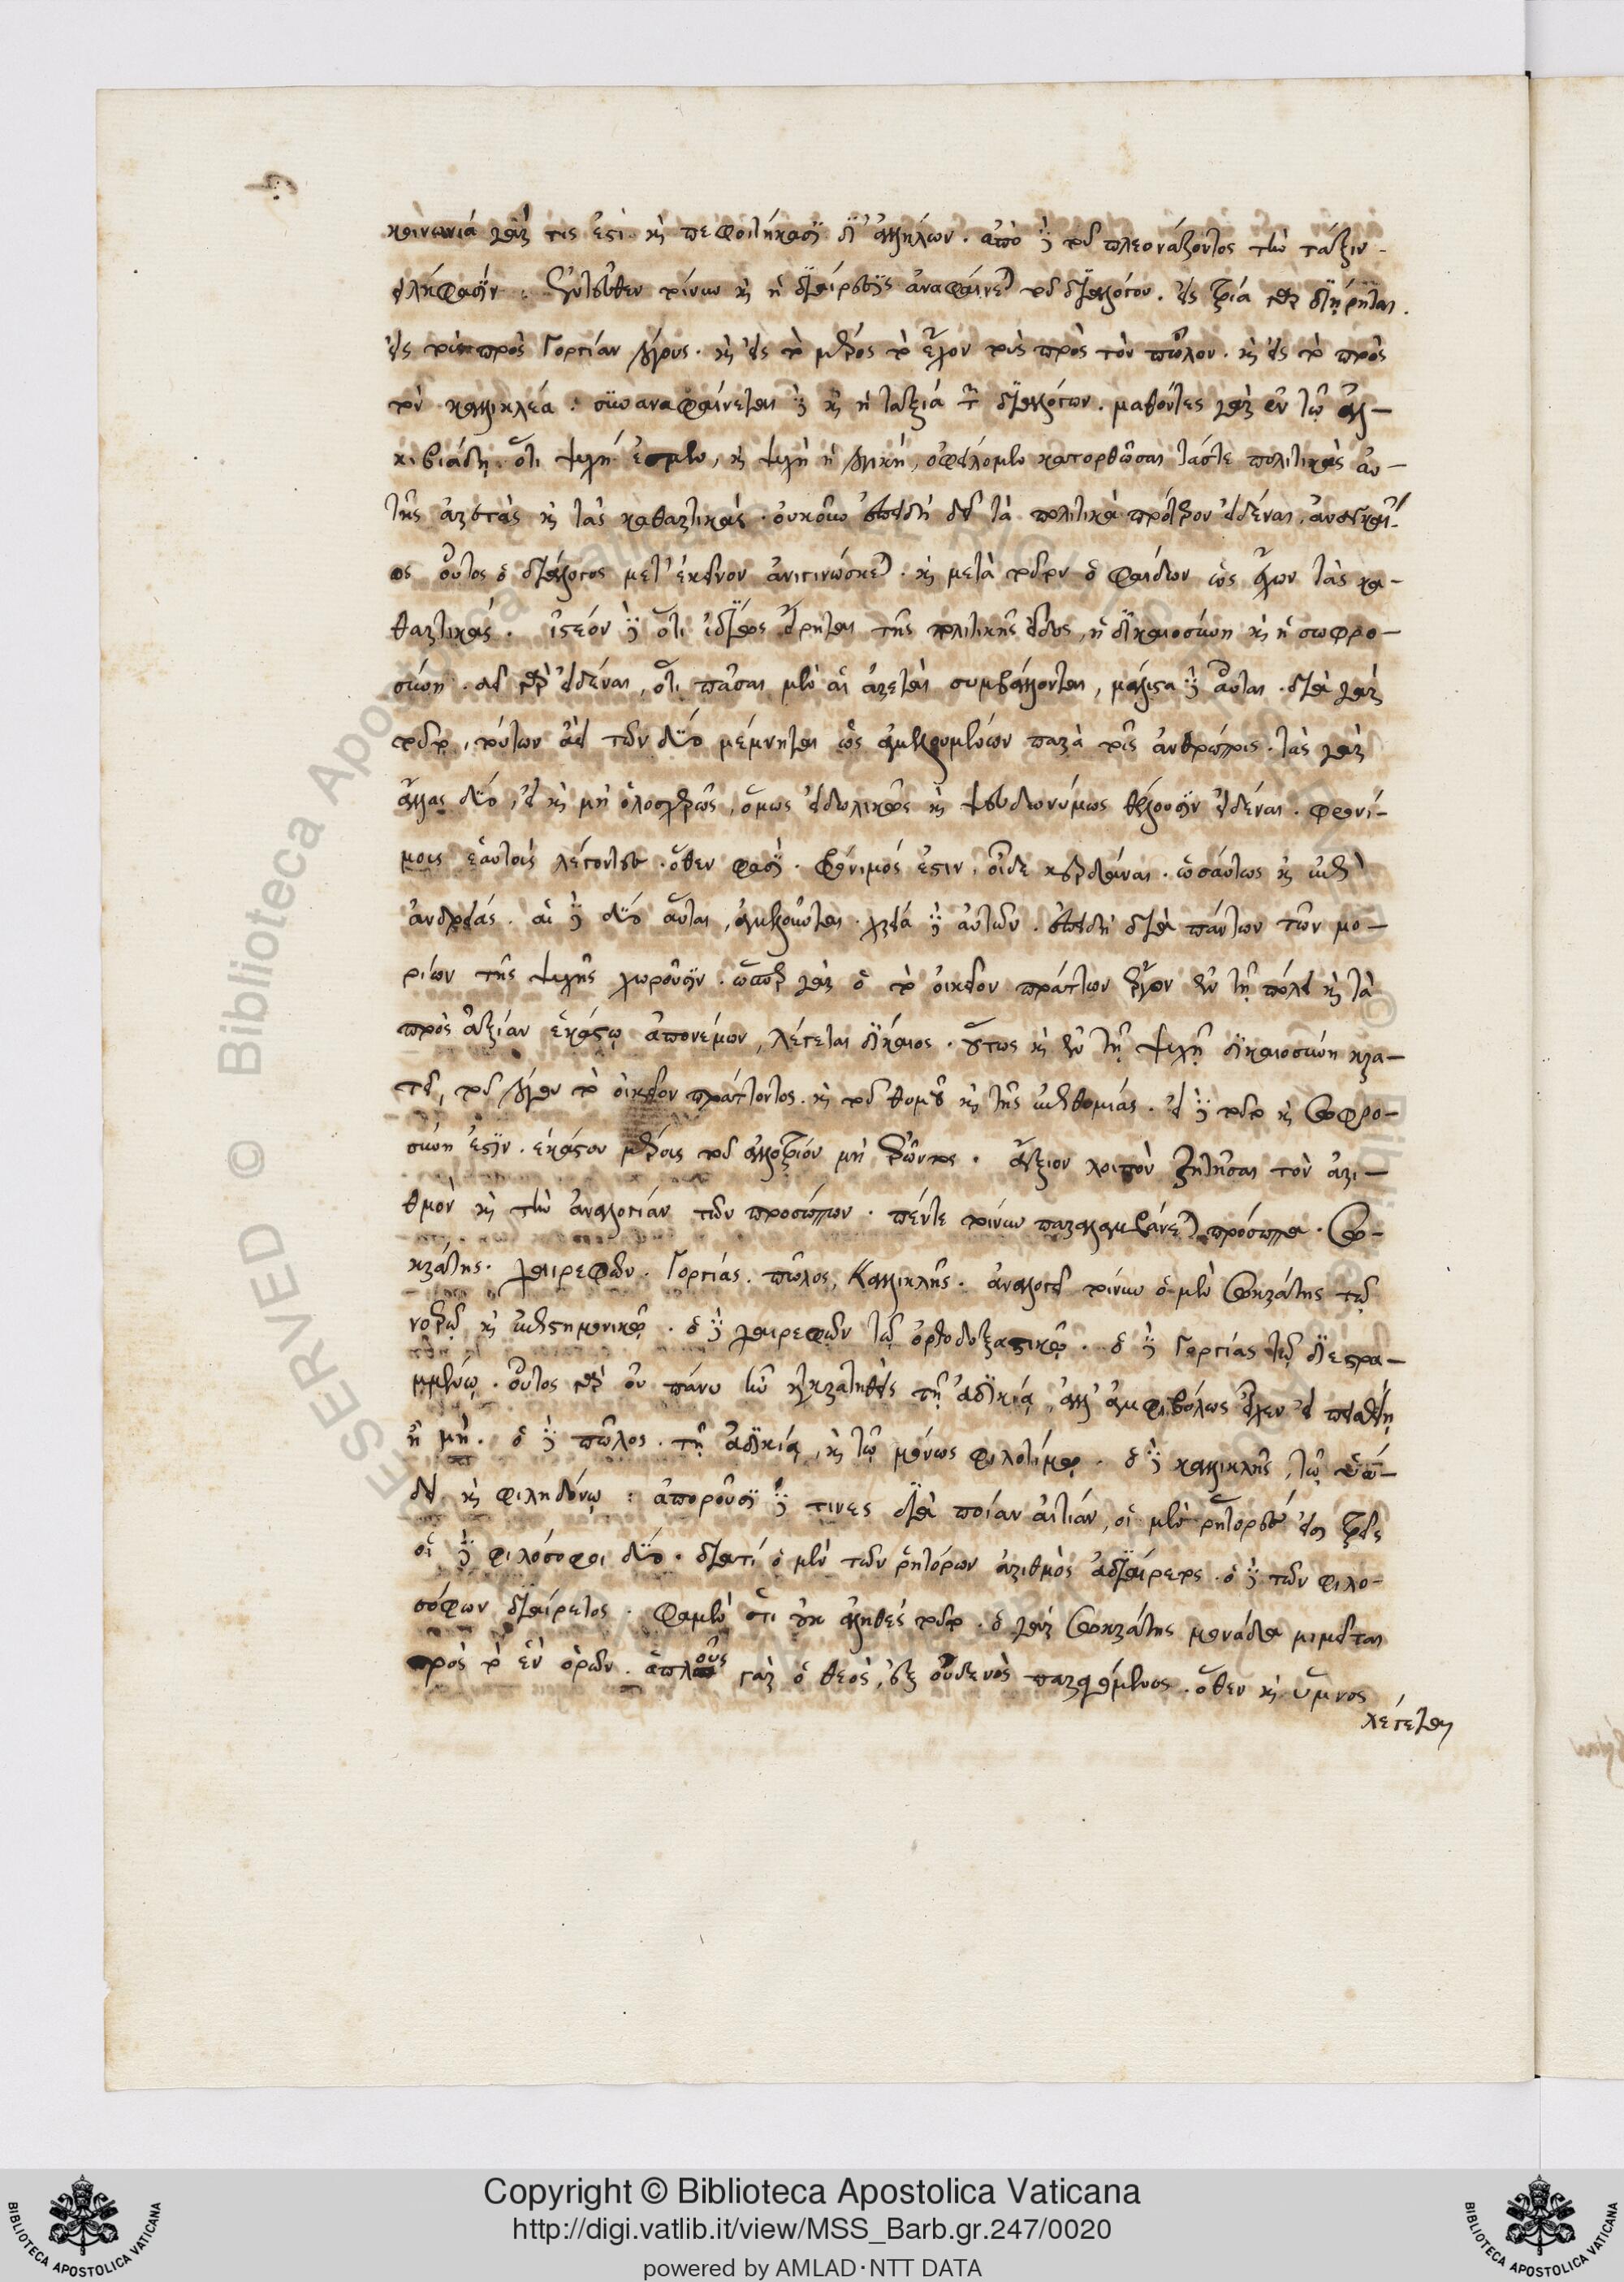 κοινωνία γάρ τις ἐστὶ. καὶ πεφοιτήκασι δι' ἀλλήλων. ἀπὸ δὲ τοῦ πλεονάζοντος τὴν τάξιν
εἰλήφασιν: Ἐντεῦθεν τοίνυν καὶ ἡ διαίρεσις ἀναφαίνεται τοῦ διαλόγου. εἰς τρία γὰρ διῄρηται.
εἰς τοὺς πρὸς Γοργίαν λόγους. καὶ εἰς τὸ μέρος τὸ ἔχον τοὺς πρὸς τὸν πῶλον. καὶ εἰς τὸ πρὸς
τὸν καλλικλέα: συναναφαίνεται δὲ καὶ ἡ ταξιὰ τῶν διαλόγων. μαθόντες γὰρ ἐν τῷ ἀλ-
κιβιάδῃ. ὅτι ψυχή ἐσμεν, καὶ ψυχὴ ἡ λογικὴ, ὀφείλομεν κατορθῶσαι τάς τε πολιτικὰς αὐ-
τῆς ἀρετὰς καὶ τὰς καθαρτικάς. οὐκοῦν ἐπειδὴ δεῖ τὰ πολιτικὰ πρότερον εἰδέναι, ἀναγκαί-
ως οὗτος ὁ διάλογος μετ' ἐκεῖνον ἀνιγινώσκεται. καὶ μετὰ τοῦτον ὁ Φαίδων ὡς ἔχων τὰς κα-
θαρτικάς. ἰστέον δὲ ὅτι ἰδίως εἴρηται τῆς πολιτικῆς εἶδος, ἡ δικαιοσύνη καὶ ἡ σωφρο-
σύνη. δεῖ γὰρ εἰδέναι, ὅτι πᾶσαι μὲν αἱ ἀρεταὶ συμβάλλονται, μάλιστα δὲ αὗται. διὰ γὰρ
τοῦτο, τούτων ἀεὶ τῶν δύο μέμνηται ὡς ἀμελουμένων παρὰ τοῖς ἀνθρώποις. τὰς γὰρ
ἄλλας δύο, εἰ καὶ μὴ ὁλοσχερῶς, ὅμως εἰδωλικῶς καὶ ψευδωνύμως θέλουσιν εἰδέναι. φρονί-
μους ἑαυτοὺς λέγοντες. ὅθεν φασὶ. φρόνιμός ἐστιν. οἶδε κερδάναι. ὡσαύτως καὶ ἐπὶ
ἀνδρείας. αἱ δὲ δύο αὗται, ἀμελοῦνται. χρεία δὲ αὐτῶν. ἐπειδὴ διὰ πάντων τῶν μο-
ρίων τῆς ψυχῆς χωροῦσιν. ὥσπερ γὰρ ὁ τὸ οἰκεῖον πράττων ἔργον ἐν τῇ πόλει καὶ τὰ
πρὸς ἀξίαν ἑκάστῳ ἀπονέμων, λέγεται δίκαιος. οὕτως καὶ ἐν τῇ ψυχῇ δικαιοσύνη κρα-
τεῖ, τοῦ λόγου τὸ οἰκεῖον πράττοντος. καὶ τοῦ θυμοῦ καὶ τῆς ἐπιθυμίας. εἰ δὲ τοῦτο καὶ σωφρο-
σύνη ἐστὶν. ἑκάστου μέρους τοῦ ἀλλοτρίου μὴ ἐρῶντος. ἄξιον λοιπὸν ζητῆσαι τὸν ἀρι-
θμὸν καὶ τὴν ἀναλογίαν τῶν προσώπων. πέντε τοίνυν παραλαμβάνεται πρόσωπα. Σω-
κράτης. χαιρεφῶν. Γοργίας. πῶλος, Καλλικλῆς. ἀναλογεῖ τοίνυν ὁ μὲν Σωκράτης τῷ
νοερῷ καὶ ἐπιστημονικῷ. ὁ δὲ χαιρεφῶν τῷ ὀρθοδοξαστικῷ. ὁ δὲ Γοργίας τῷ διεστρα-
μμένῳ. οὗτος γὰρ οὐ πάνυ ἦν κεκρατηθεὶς τῇ ἀδικίᾳ, ἀλλ' ἀμφιβόλως εἶχεν εἰ πεισθείη
ἢ μή. ὁ δὲ πῶλος. τῇ ἀδικίᾳ, καὶ τῷ μόνως φιλοτίμῳ. ὁ δὲ καλλικλῆς, τῷ ὑώ-
δει καὶ φιληδόνῳ: ἀποροῦσι δὲ τινες διὰ ποίαν αἰτίαν, οἱ μὲν ῥήτορές εἰσι τρεῖς
οἱ δὲ φιλόσοφοι δύο. διατί ὁ μὲν τῶν ῥητόρων ἀριθμὸς ἀδιαίρετος. ὁ δὲ τῶν φιλο-
σόφων διαίρετος. φαμὲν ὅτι οὐκ ἀληθὲς τοῦτο. ὁ γὰρ Σωκράτης μονάδα μιμεῖται
πρὸς τὸ ἓν ὁρῶν. ἁπλοῦς γὰρ ὁ θεὸς, ἐξ οὐδενὸς παραγόμενος. ὅθεν καὶ ὕμνος
λέγεται
Copyright © Biblioteca Apostolica Vaticana
http://digi.vatlib.it/view/MSS_Barb.gr.247/0020
powered by AMLAD·NTT DATA